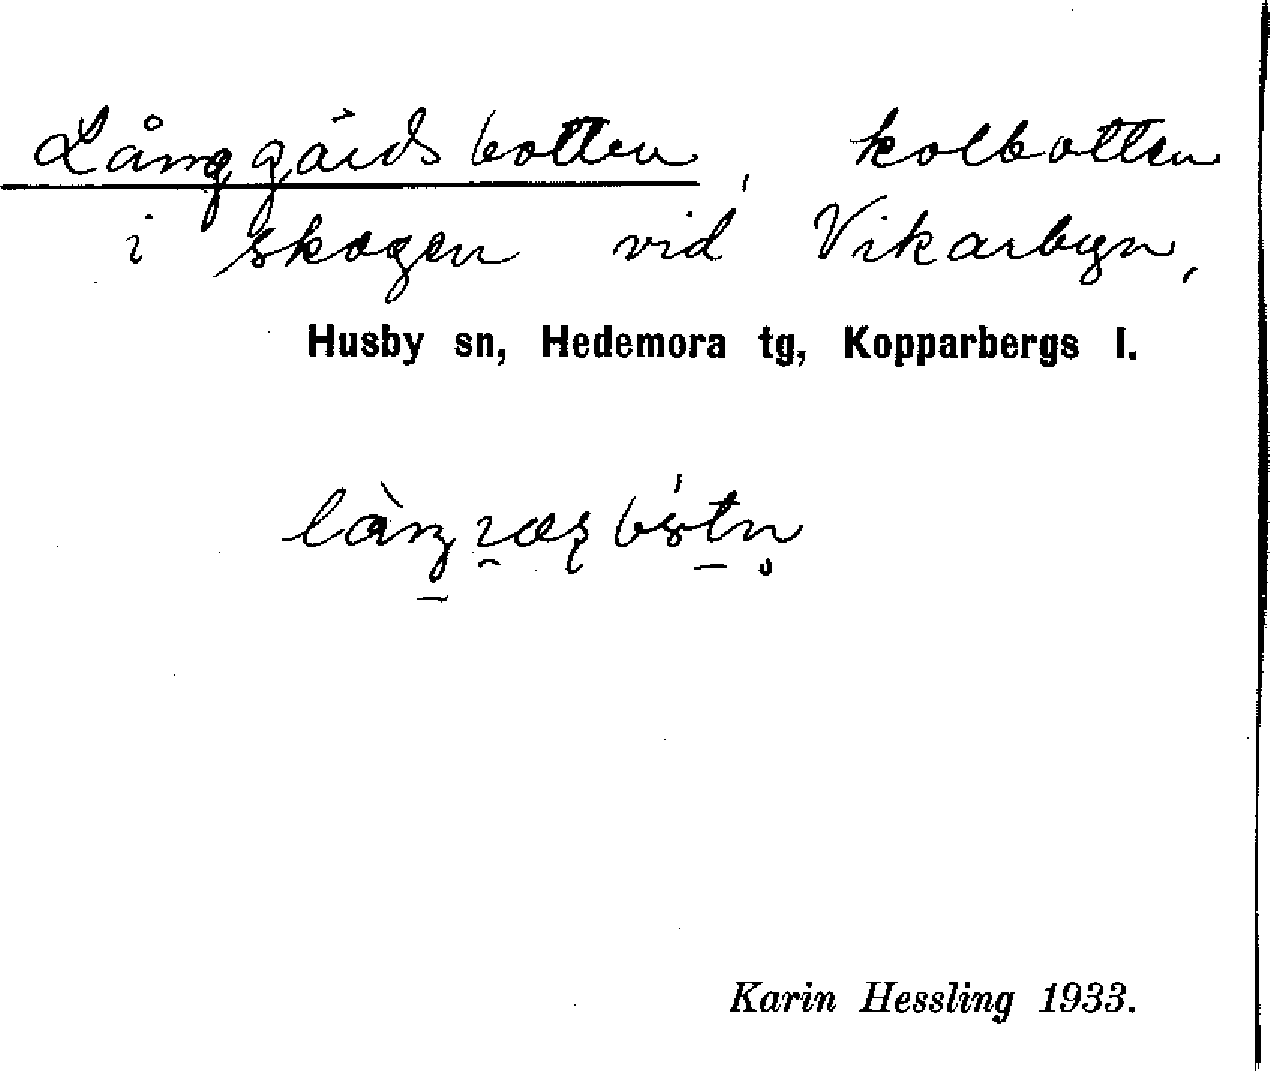 Långgärdsbotten, kolbotten
i skogen vid Vikarbyn,
Husby sn, Hedemora tg, Kopparbergs l.
Karin Hessling 1933.